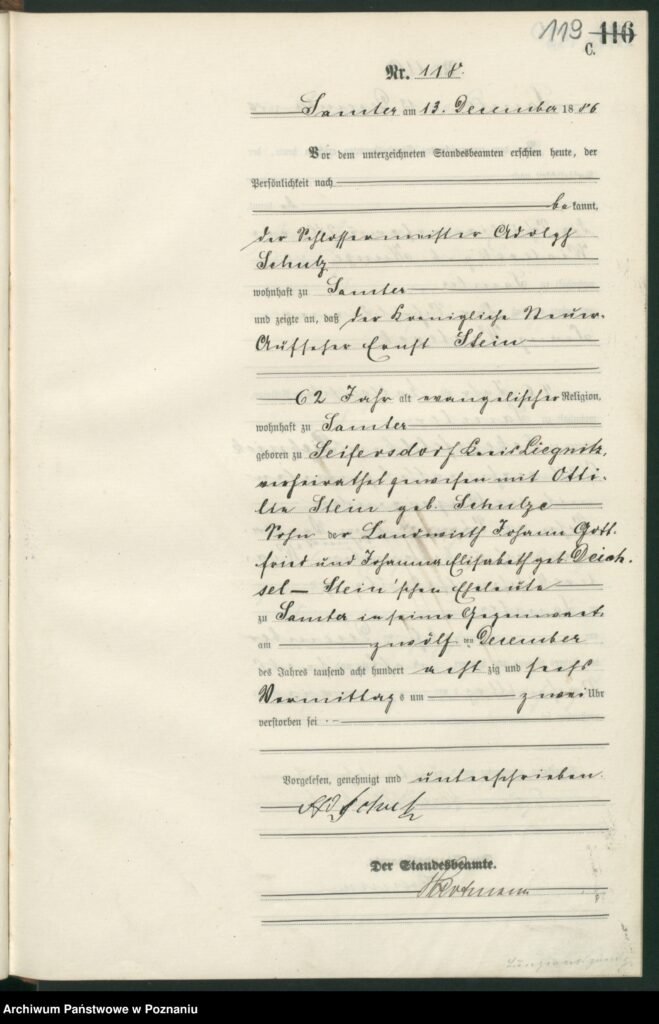 119 116
C.
Nr. 118.
Samter am 13. December 1886
Vor dem unterzeichneten Standesbeamten erschien heute, der
Persönlichkeit nach
bekannt,
der Schlossermeister Adolph
Schulz
wohnhaft zu Samter
und zeigte an, daß der Koenigliche Steuer-
Aufseher Ernst Stein
62 Jahr alt evangelischer Religion,
wohnhaft zu Samter
geboren zu Seifersdorf Kreis Liegnitz,
verheirathet gewesen mit Otti-
lie Stein geb. Schulze
Sohn der Landwirth Johann Gott-
fried und Johanna Elisabeth geb. Deich-
sel – Stein'schen Eheleute
zu Samter in seiner Gegenwart
am zwölften December
des Jahres tausend acht hundert achtzig und sechs
Vormittags um zwei Uhr
verstorben sei.
Vorgelesen, genehmigt und unterschrieben
Ad. Schulz
Der Standesbeamte.
Archiwum Państwowe w Poznaniu